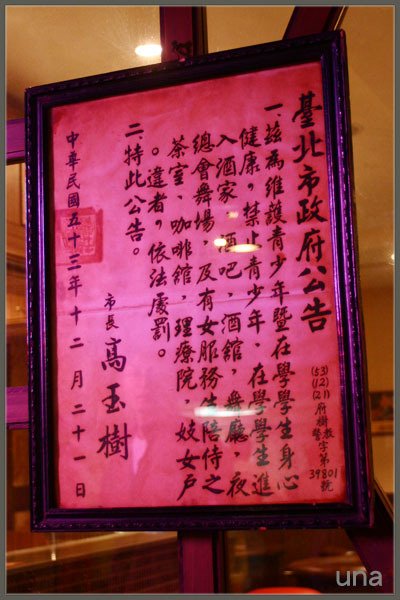 臺北市政府公告
(53)(12)(21)府樹教警字第39801號
一、茲為維護青少年暨在學學生身心
健康，禁止青少年、在學學生進
入酒家，酒吧，酒館，舞廳，夜
總會舞場，及有女服務生陪侍之
茶室，咖啡館，理療院，妓女戶
。違者，依法處罰。
二、特此公告。
市長 高玉樹
中華民國五十三年十二月二十一日
una